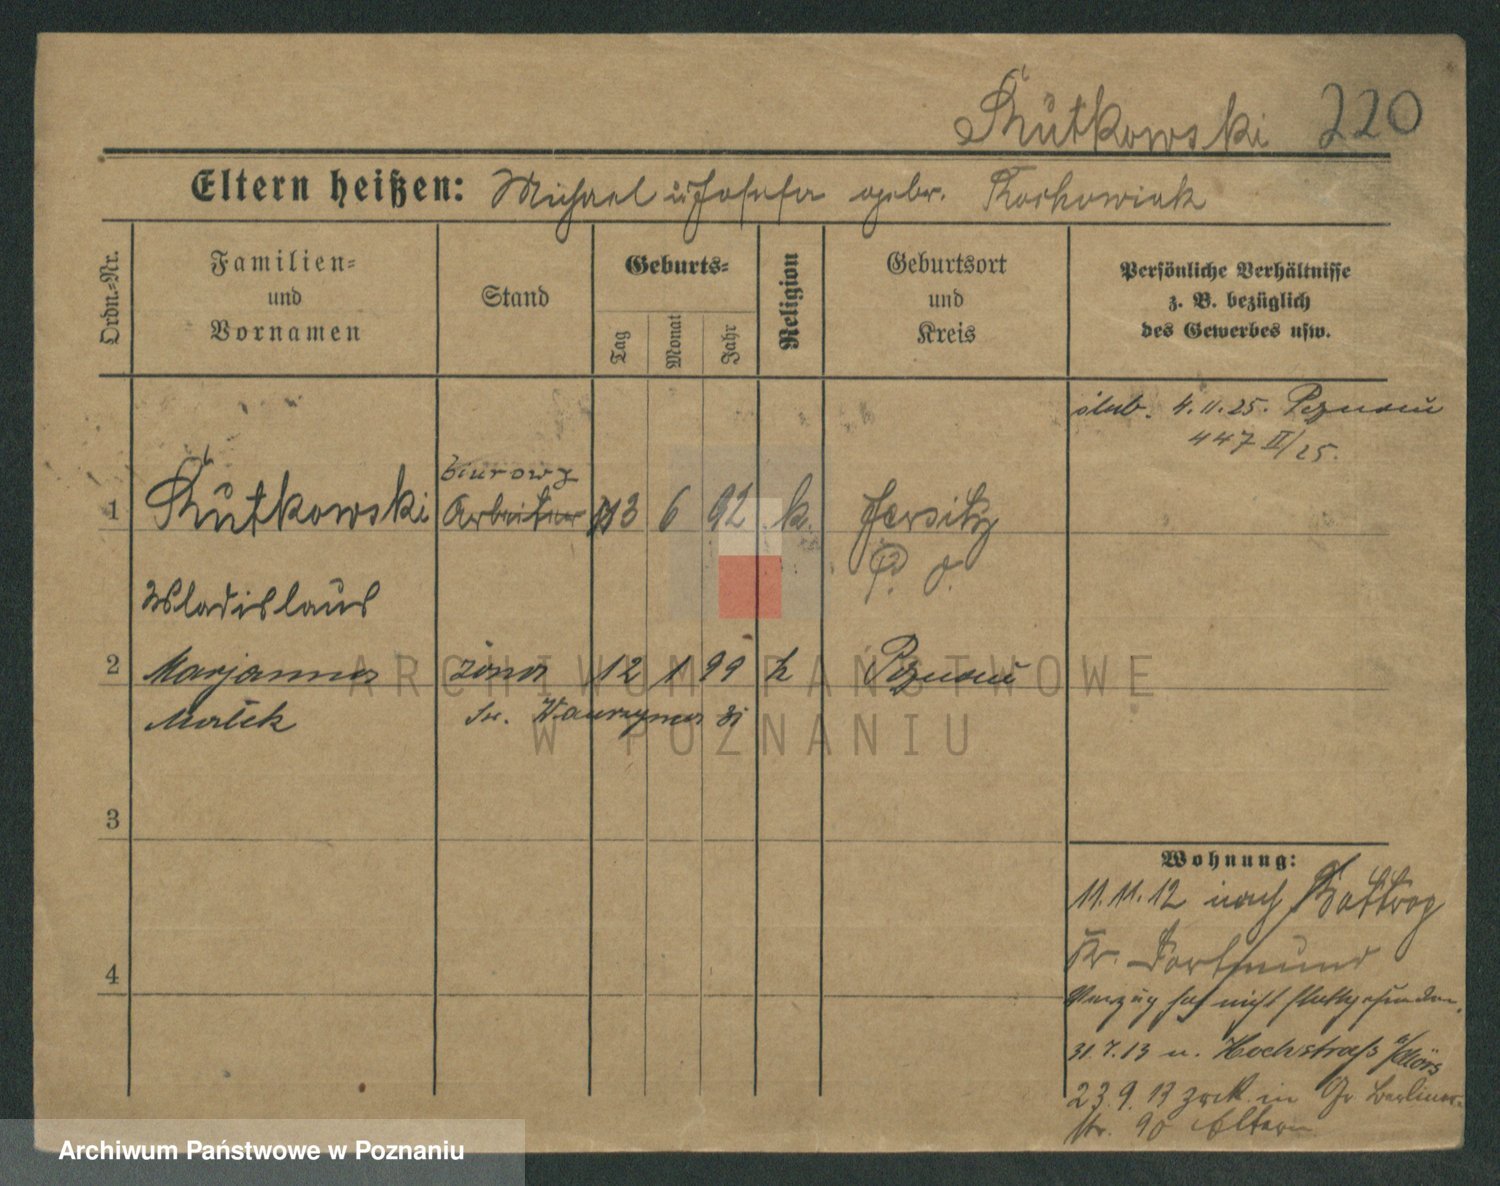 Rutkowski 220
Eltern heißen: Michael u Josefa gebr.
Ordn.-Nr.
Familien-
und
Vornamen
Stand
Geburts-
Tag
Monat
Jahr
Religion
Geburtsort
und
Kreis
Persönliche Verhältnisse
z. B. bezüglich
des Gewerbes usw.
ślub. 4.11.25. Poznań
447 II/25.
1 Rutkowski biurowy Arbeiter 13 6 92 k. Jersitz
P. O.
Wladislaus
2 Marjanna żona 12 1 99 k Poznań
Małek św. Wawrzyna 31
3
4
Wohnung:
11.11.12 nach Bottrop
Kr. Dortmund
Umzug hat nicht stattgefunden.
31.7.13 n. Hochstraß Mörs
23.9.13 zurk. in Gr Berliner-
str. 90 Eltern
ARCHIWUM PAŃSTWOWE
W POZNANIU
Archiwum Państwowe w Poznaniu